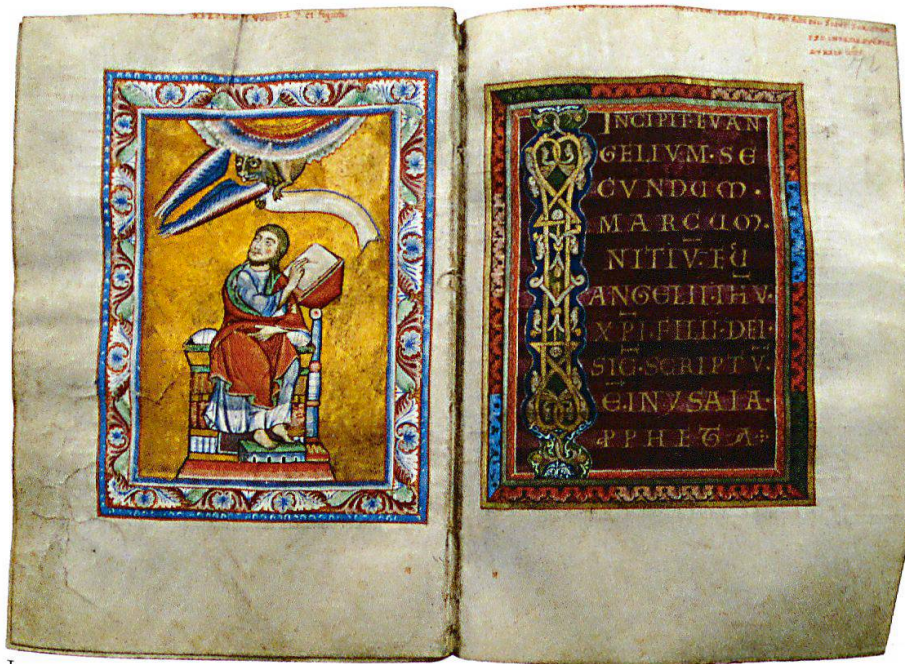 INCIPIT·EVAN
GELIVM·SE
CUNDUM·
MARCUM·
NITIV̄·EU
ANGELII·IHV·
XPI·FILII·DEI·
SIC̄·SCRIPTV̄·
E·IN YSAIA·
PPHETA